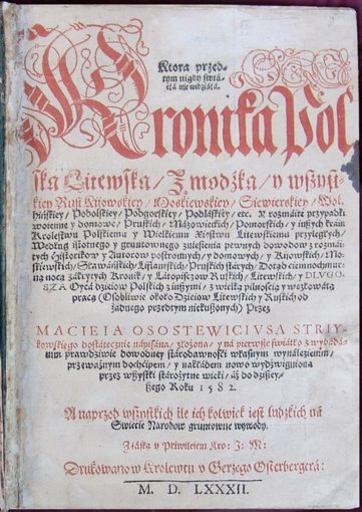 Ktora przed-
tym nigdy świá-
tá nie widziáłá.
Kronika Pol
ska Litewska / Zmodźka / y wszyst-
kiey Rusi Kijowskiey / Moskiewskiey / Siewierskiey / Wol-
hińskiey / Podolskiey / Podgorskiey / Podláskiey / etc. Y rozmáite przypadki
woienne y domowe / Pruskich / Mázowieckich / Pomorskich / y inszych kráin
Krolestwu Polskiemu y Wielkiemu Xięstwu Litewskiemu przyległych /
Według istotnego y gruntownego zniesienia pewnych dowodow z rozmái-
tych Historikow y Autorow postronnych / y domowych / y Kijowskich / Mo-
skiewskich / Sławáńskich Liflantskich / Pruskich stárych / Dotąd ciemnochmur-
ną nocą zákrytych Kronik / y Latopiszczow Ruskich / Litewskich / y DLVGO-
SZA Oycá dzieiow Polskich z inszymi / z wielką pilnością y
pracą (Osobliwie około Dzieiow Litewskich y Ruskich od
żadnego przedtym niekuszonych) Przez
MACIEIA OSOSTEWICIVSA STRIY-
kowskiego dostátecznie nápisána / złożona / y ná pierwsze świátło
prawdziwie dowodney stárodawności własnym wynálezieniem /
przeważnym dochćipem / y nakłádem nowo wydźwigniona
przez wszystki stárożytne wieki / áż do dzisiey-
szego Roku 1582.
A naprzod wszystkich ile ich kolwiek iest ludzkich ná
Swiecie Narodow gruntowne wywody.
Z łáską y Priwileiem Kro: J: M:
Drukowano w Krolewcu v Gerzego Osterbergerá:
M. D. LXXXII.